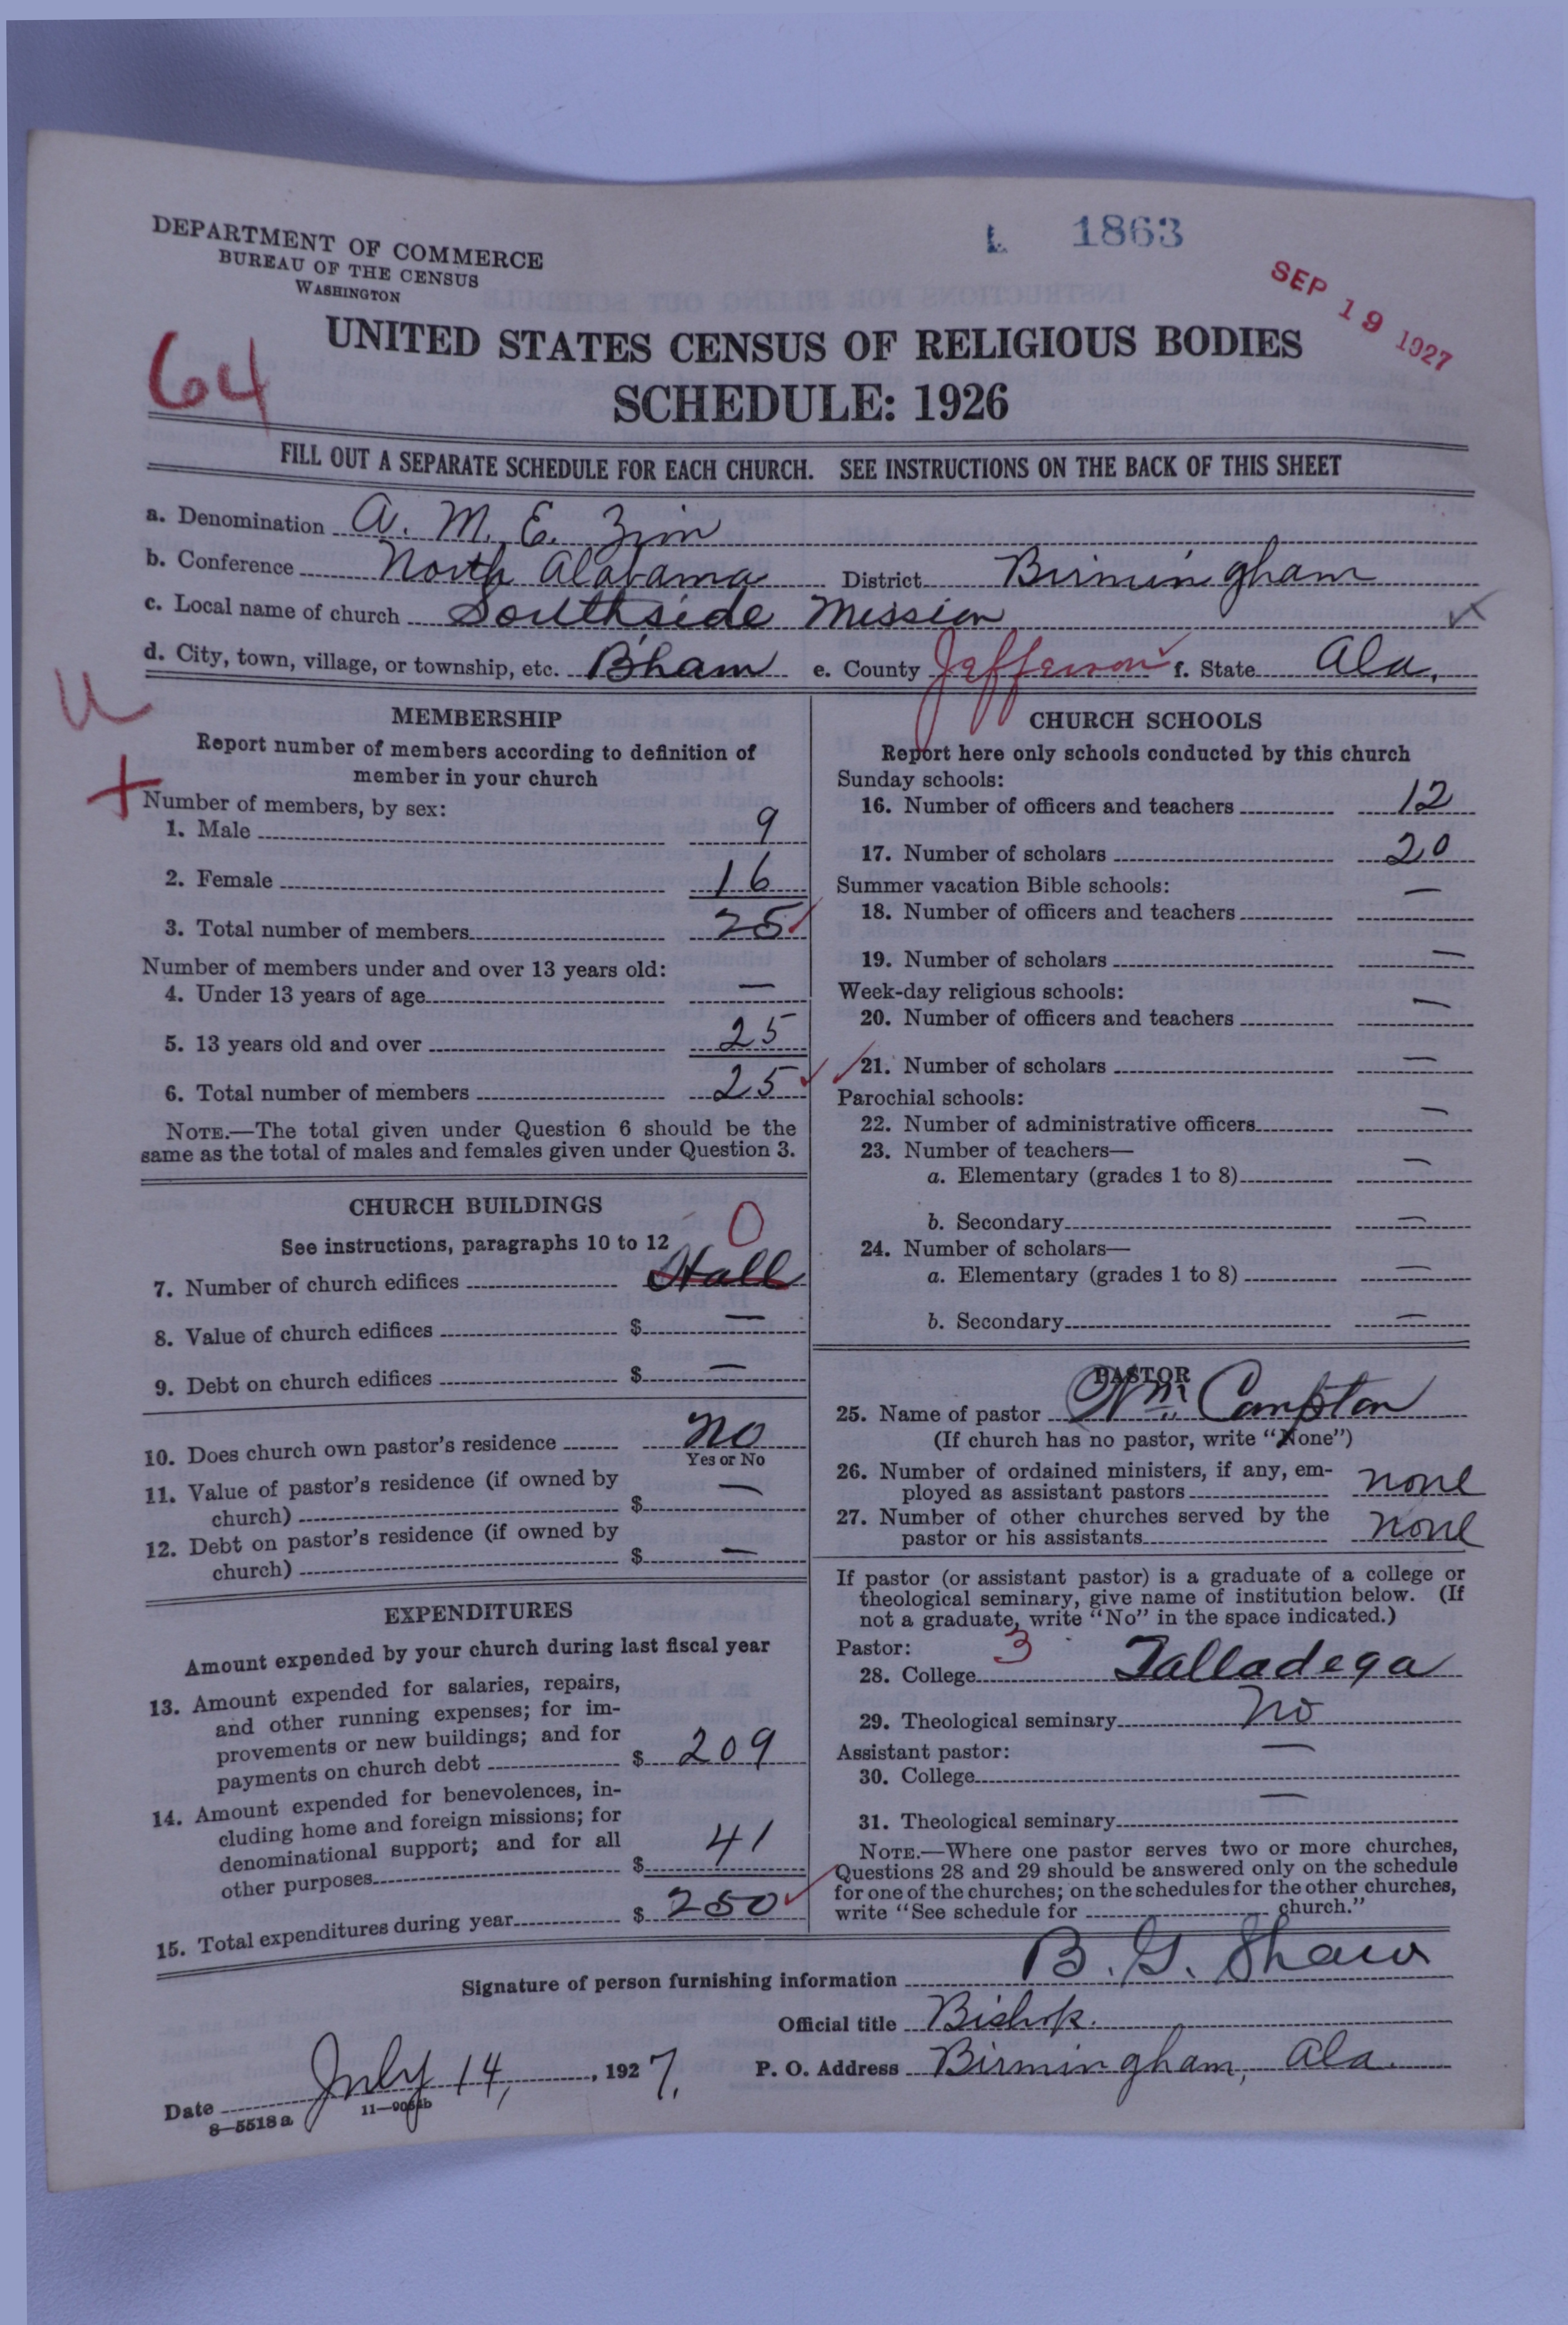 L 1863
SEP 19 1927
DEPARTMENT OF COMMERCE
BUREAU OF THE CENSUS
WASHINGTON
64
UNITED STATES CENSUS OF RELIGIOUS BODIES
SCHEDULE: 1926
FILL OUT A SEPARATE SCHEDULE FOR EACH CHURCH. SEE INSTRUCTIONS ON THE BACK OF THIS SHEET
a. Denomination A. M. E. Zion
b. Conference North Alabama District Birmingham
c. Local name of church Southside Mission
d. City, town, village, or township, etc. B'ham e. County Jefferson f. State Ala.
U
+
MEMBERSHIP
Report number of members according to definition of
member in your church
Number of members, by sex:
1. Male 9
2. Female 16
3. Total number of members 25
Number of members under and over 13 years old:
4. Under 13 years of age —
5. 13 years old and over 25
6. Total number of members 25
NOTE.—The total given under Question 6 should be the
same as the total of males and females given under Question 3.
CHURCH BUILDINGS
See instructions, paragraphs 10 to 12 0
7. Number of church edifices Hall
8. Value of church edifices $ —
9. Debt on church edifices $ —
10. Does church own pastor's residence No
Yes or No
11. Value of pastor's residence (if owned by
church) $ —
12. Debt on pastor's residence (if owned by
church) $ —
EXPENDITURES
Amount expended by your church during last fiscal year
13. Amount expended for salaries, repairs,
and other running expenses; for im-
provements or new buildings; and for
payments on church debt $ 209
14. Amount expended for benevolences, in-
cluding home and foreign missions; for
denominational support; and for all
other purposes $ 41
15. Total expenditures during year $ 250
CHURCH SCHOOLS
Report here only schools conducted by this church
Sunday schools:
16. Number of officers and teachers 12
17. Number of scholars 20
Summer vacation Bible schools:
18. Number of officers and teachers —
19. Number of scholars —
Week-day religious schools:
20. Number of officers and teachers —
21. Number of scholars —
Parochial schools:
22. Number of administrative officers —
23. Number of teachers—
a. Elementary (grades 1 to 8) —
b. Secondary —
24. Number of scholars—
a. Elementary (grades 1 to 8) —
b. Secondary —
PASTOR
25. Name of pastor Wm. Campton
(If church has no pastor, write "None")
26. Number of ordained ministers, if any, em-
ployed as assistant pastors none
27. Number of other churches served by the
pastor or his assistants none
If pastor (or assistant pastor) is a graduate of a college or
theological seminary, give name of institution below. (If
not a graduate, write "No" in the space indicated.)
Pastor: 3
28. College Talladega
29. Theological seminary No
Assistant pastor:
30. College —
31. Theological seminary —
NOTE.—Where one pastor serves two or more churches,
Questions 28 and 29 should be answered only on the schedule
for one of the churches; on the schedules for the other churches,
write "See schedule for church."
Signature of person furnishing information B. G. Shaw
Official title Bishop.
Date July 14, 1927. P. O. Address Birmingham, Ala.
8—5518a 11—9054b